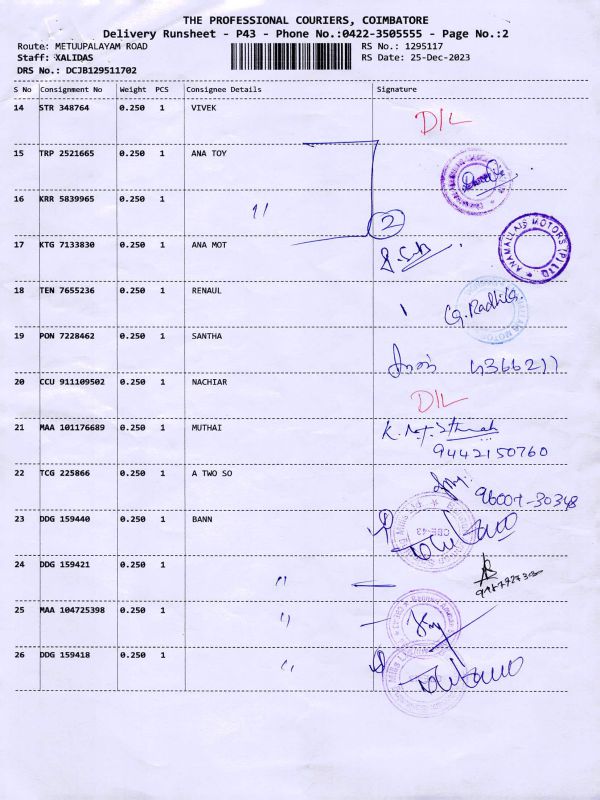 THE PROFESSIONAL COURIERS, COIMBATORE
Delivery Runsheet - P43 - Phone No.:0422-3505555 - Page No.:2
Route: METUUPALAYAM ROAD RS No.: 1295117
Staff: XALIDAS RS Date: 25-Dec-2023
DRS No.: DCJB129511702
S No Consignment No Weight PCS Consignee Details Signature
14 STR 348764 0.250 1 VIVEK D/L
15 TRP 2521665 0.250 1 ANA TOY
16 KRR 5839965 0.250 1 〃
2
17 KTG 7133830 0.250 1 ANA MOT
ANAMALLAIS MOTORS (P) LTD
18 TEN 7655236 0.250 1 RENAUL G. Radhika
19 PON 7228462 0.250 1 SANTHA
20 CCU 911109502 0.250 1 NACHIAR D/L
21 MAA 101176689 0.250 1 MUTHAI
9442150760
22 TCG 225866 0.250 1 A TWO SO
96007-30348
23 DDG 159440 0.250 1 BANN
24 DDG 159421 0.250 1 〃
25 MAA 104725398 0.250 1 〃
26 DDG 159418 0.250 1 〃